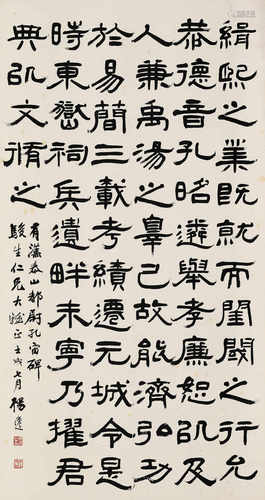 緝熙之業既就而閨閾之行允
恭德音孔昭遂舉孝廉恕㠯及
人兼禹湯之辠己故能濟弘功
於易簡三載考績遷元城令是
時東嶽祠兵遺畔未寧乃擢君
典㠯文脩之
有漢泰山都尉孔宙碑
駿生仁兄大雅正壬戌七月楊逸